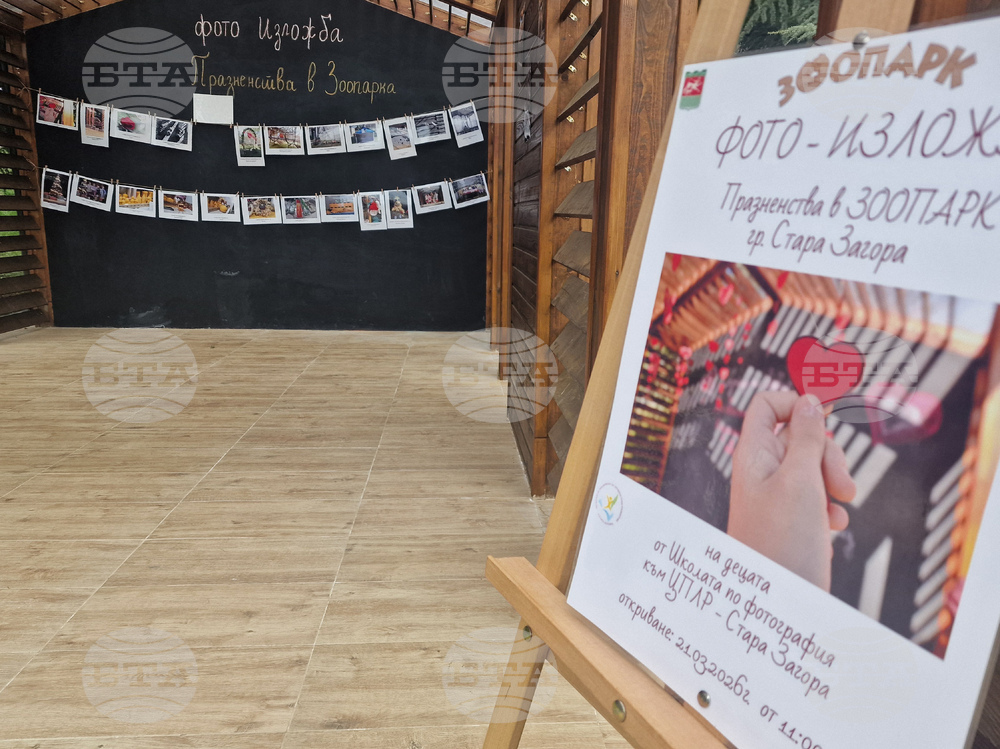 фото Изложба
Празненства в Зоопарка
ЗООПАРК
ФОТО - ИЗЛОЖ
Празненства в ЗООПАРК
гр. Стара Загора
на децата
от Школата по фотография
към ЦПЛР - Стара Загора
откриване: 21.03.2026г. от 11:00
БТА
БТА
БТА
БТА
БТА
БТА
БТА
БТА
БТА